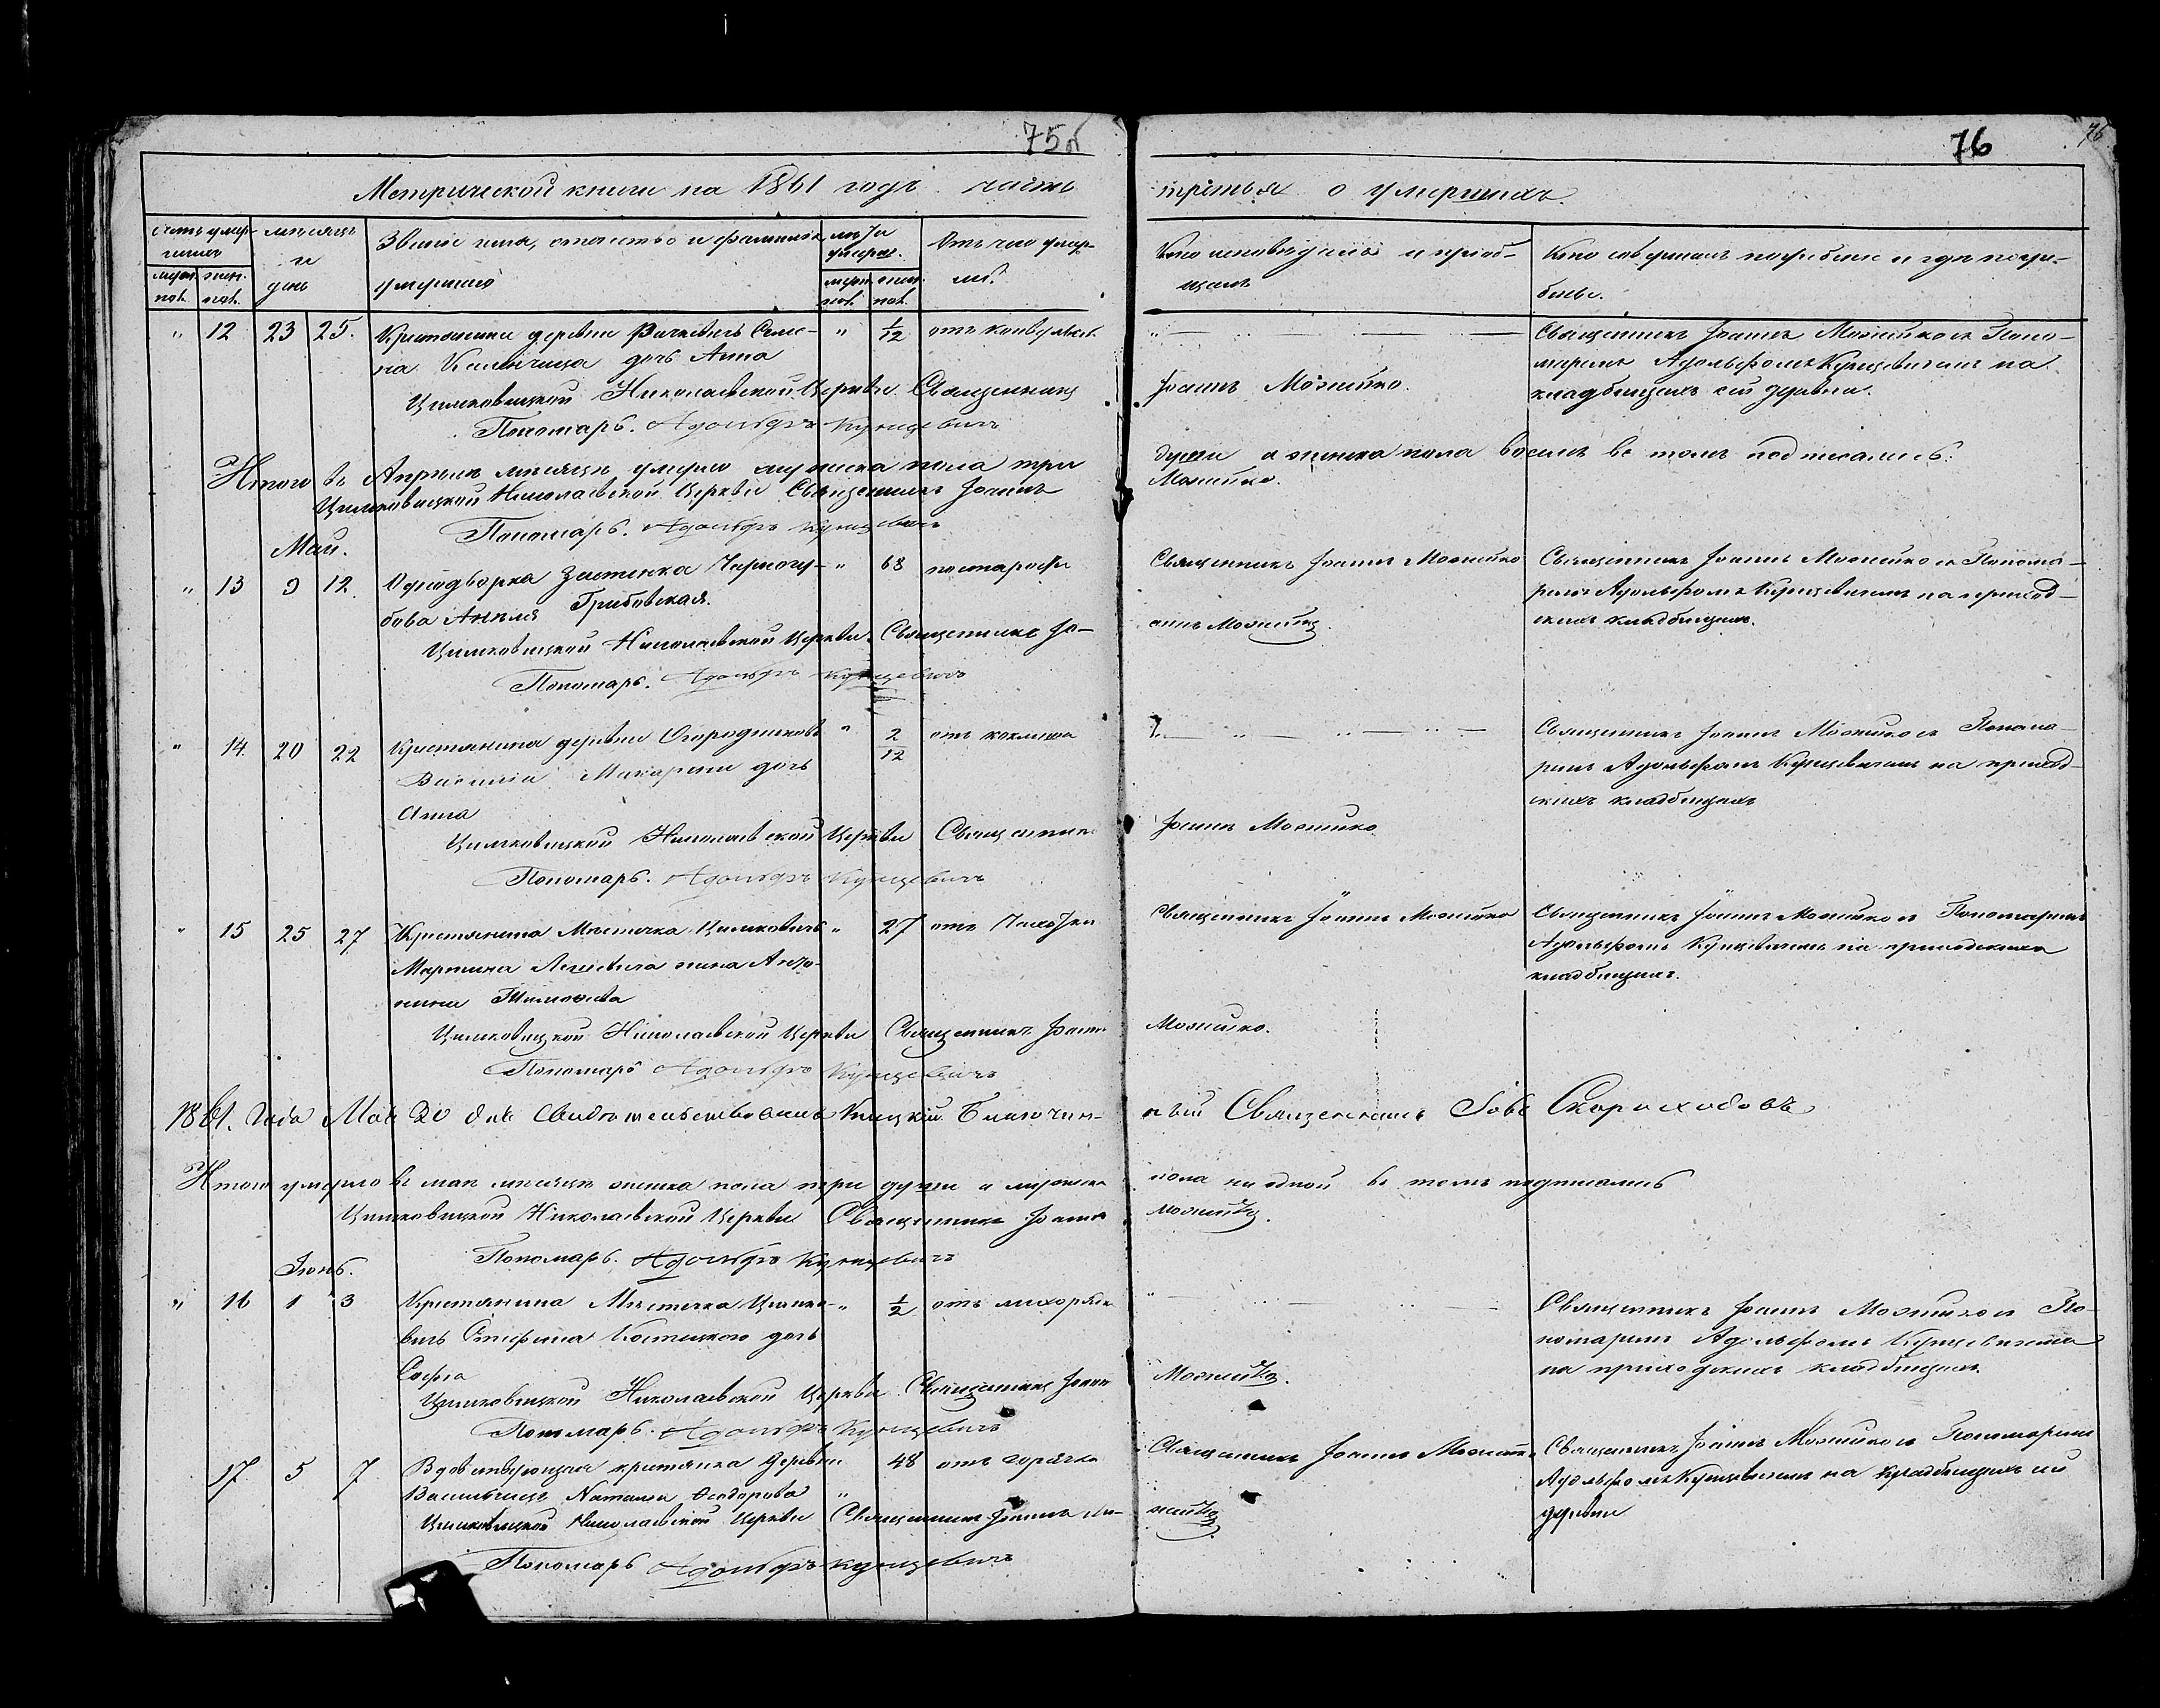 75об
76
76
Метрической книги на 1861 годъ часть третья о умершихъ.
Счетъ умер-
шихъ
муж. пол.
жен. пол.
мѣсяцъ
и
день
Званіе имя, отчество и фамилія
умершаго
лѣта
умерш.
муж. пол.
жен. пол.
Отъ чего умер-
ли?
Кто исповѣдувалъ и пріоб-
щалъ
Кто совершалъ погребеніе и гдѣ погре-
бены.
" 12 23 25. Крестьянина деревни Семе-
на дочь Анна
" 1/12
Священникъ Іоаннъ Можейко и Поно-
маремъ Адольфомъ Кунцевичемъ на
кладбищахъ сей деревни.
Цимковицкой Николаевской Церкви Священникъ Іоаннъ Можейко.
Пономарь. Адольфъ Кунцевичъ
Итого въ Апрѣлѣ мѣсяцѣ умерло мужеска пола три души а женска пола восемь въ томъ подписались:
Цимковицкой Николаевской Церкви Священникъ Іоаннъ Можейко.
Пономарь. Адольфъ Кунцевичъ
Май.
" 13 9 12. Однодворка Застенка
Грибовская.
" 68 постарости
Священникъ Іоаннъ Можейко
Священникъ Іоаннъ Можейко и Понома-
ремъ Адольфомъ Кунцевичемъ на приход-
скихъ кладбищахъ.
Цимковицкой Николаевской Церкви Священникъ Іо-
аннъ Можейко.
Пономарь. Адольфъ Кунцевичъ
" 14. 20 22 Крестьянина деревни Огородниковъ
Василія дочь
Анна
" 2/12 отъ коклюша
Священникъ Іоаннъ Можейко и Понома-
ремъ Адольфомъ Кунцевичемъ на приход-
скихъ кладбищахъ
Цимковицкой Николаевской Церкви Священникъ Іоаннъ Можейко
Пономарь. Адольфъ Кунцевичъ
" 15 25 27 Крестьянина Мѣстечка Цимковичъ
Мартина жена Анто-
нина
" 27 отъ Чахотки
Священникъ Іоаннъ Можейко
Священникъ Іоаннъ Можейко и Пономаремъ
Адольфомъ Кунцевичемъ на приходскихъ
кладбищахъ.
Цимковицкой Николаевской Церкви Священникъ Іоаннъ Можейко.
Пономарь Адольфъ Кунцевичъ
1861. Года Мая дня свидѣтельствовалъ Благочин-
ный Священникъ Скороходовъ
Итого умерло въ маѣ мѣсяцѣ женска пола три души а мужеска пола ни одной въ томъ подписались
Цимковицкой Николаевской Церкви Священникъ Іоаннъ Можейко.
Пономарь. Адольфъ Кунцевичъ
Іюнь.
" 16 1 3 Крестьянина Мѣстечка Цимко-
вичъ Стефана дочь
Софія
" 1/2 отъ лихорадки
Священникъ Іоаннъ Можейко и По-
номаремъ Адольфомъ Кунцевичемъ
на приходскихъ кладбищахъ.
Цимковицкой Николаевской Церкви Священникъ Іоаннъ Можейко.
Пономарь. Адольфъ Кунцевичъ
17 5 7 Вдовствующая крестьянка деревни
Наталія Феодорова
" 48 отъ горячки
Священникъ Іоаннъ Можейко
Священникъ Іоаннъ Можейко и Пономаремъ
Адольфомъ Кунцевичемъ на кладбищахъ сей
деревни
Цимковицкой Николаевской Церкви Священникъ Іоаннъ Мо-
жейко
Пономарь Адольфъ Кунцевичъ